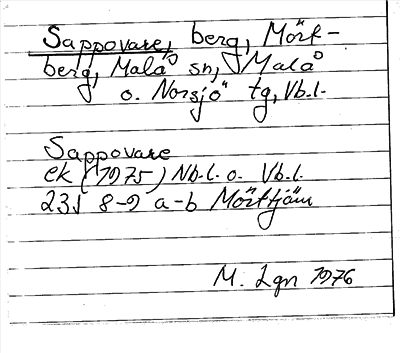 Sappovare, berg, Mört-
berg, Malå sn, Malå
o. Norsjö tg, Vb.l.
Sappovare
ek (1975) Nb.l. o. Vb.l.
23J 8-9 a-b Mörttjärn
M. Lgn 1976